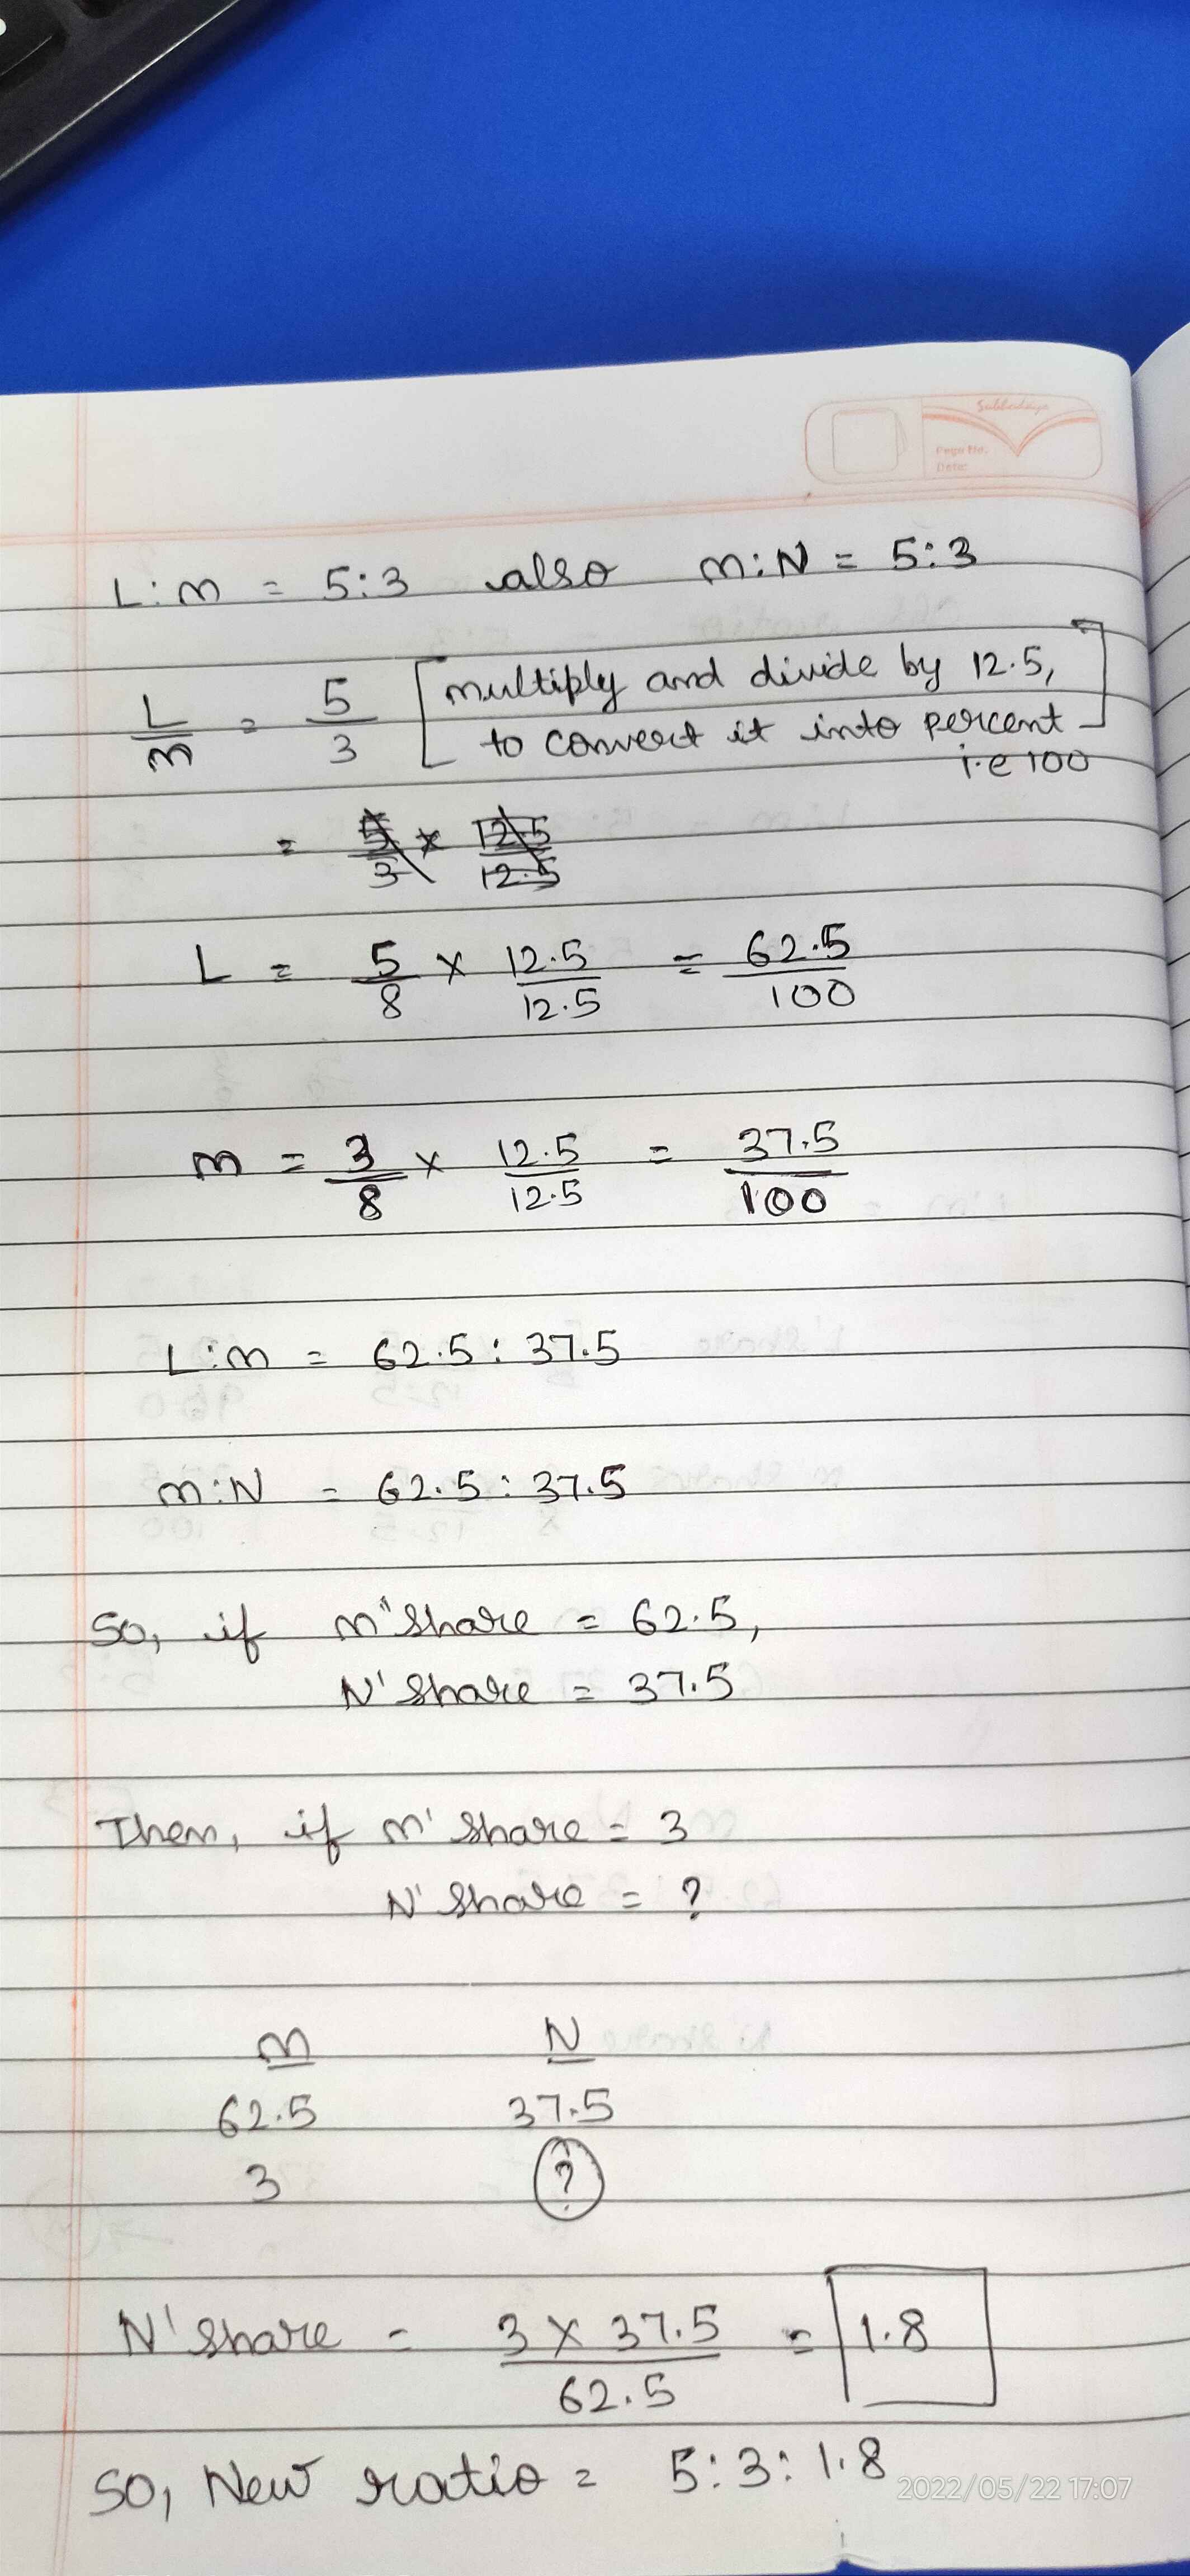 Page No.
Date:
L:M = 5:3 also M:N = 5:3
L/M = 5/3 [multiply and divide by 12.5,
to convert it into percent
i.e 100]
= 5/3 × 12.5/12.5
L = 5/8 × 12.5/12.5 = 62.5/100
M = 3/8 × 12.5/12.5 = 37.5/100
L:M = 62.5 : 37.5
M:N = 62.5 : 37.5
So, if M' Share = 62.5,
N' Share = 37.5
Then, if M' Share = 3
N' Share = ?
M N
62.5 37.5
3 ?
N' Share = 3 × 37.5/62.5 = 1.8
So, New ratio = 5:3:1.8
2022/05/22 17:07